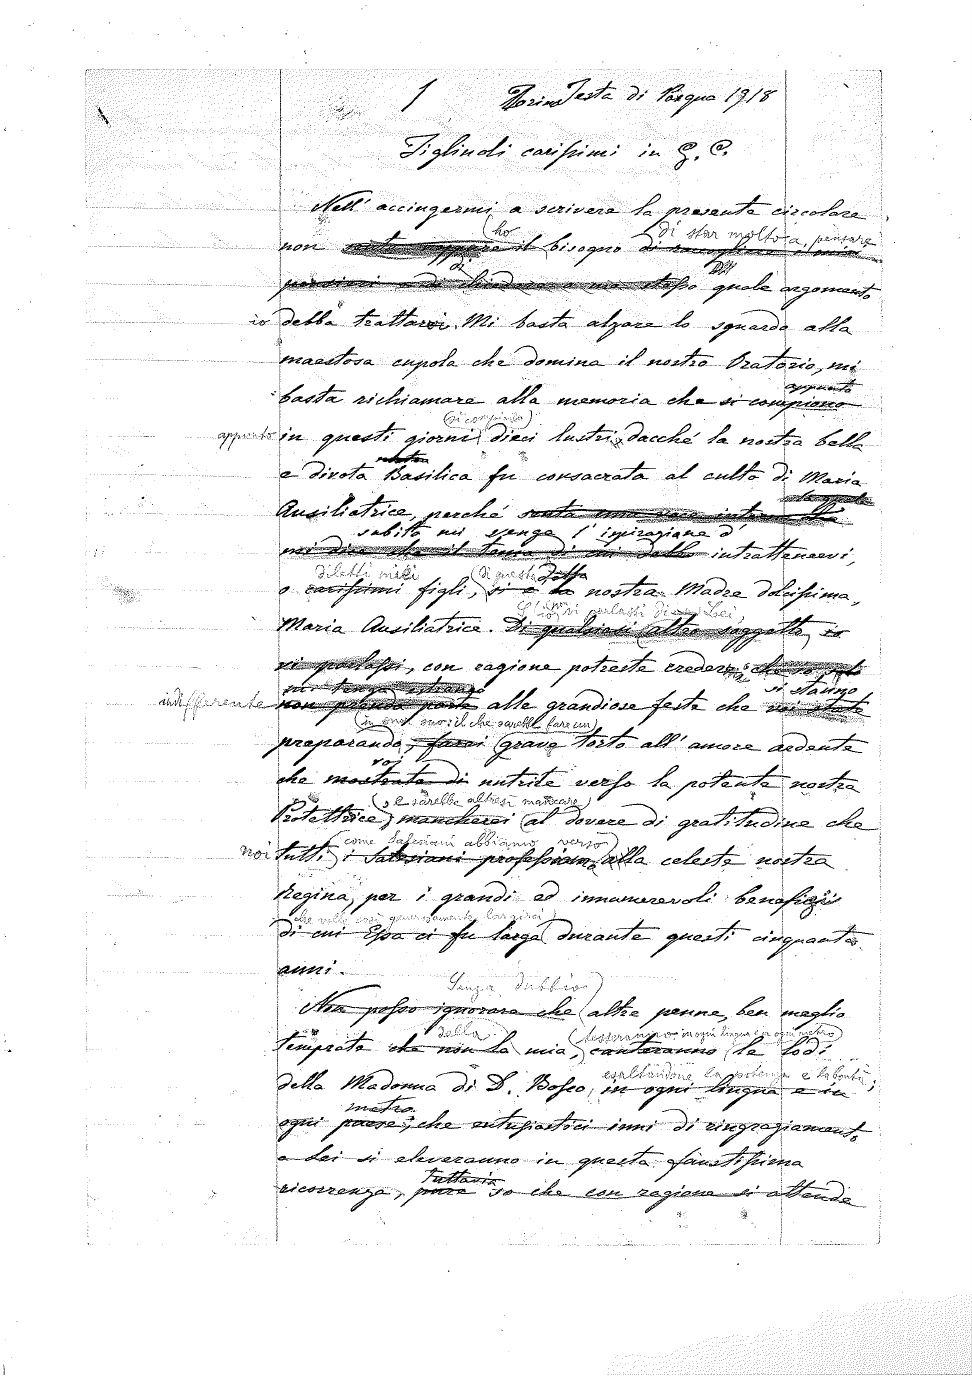 1 Torino Festa di Pasqua 1918
Figliuoli carissimi in G. C.
Nell' accingermi a scrivere la presente circolare
ho di star molto a pensare
non il bisogno di raccogliere i miei
di
pensieri e di chiedere a me stesso quale argomento
io debba trattarvi. Mi basta alzare lo sguardo alla
maestosa cupola che domina il nostro Oratorio, mi
appunto
basta richiamare alla memoria che si compiono
(si compiono)
appunto in questi giorni dieci lustri dacché la nostra bella
e divota Basilica fu consacrata al culto di Maria
la quale
Ausiliatrice, perché
subito mi venga l' ispirazione d'
mi dica che il tema di cui debbo intrattenervi,
diletti miei (di questa
o carissimi figli, si è la nostra Madre dolcissima,
vi parlassi di Lei,
Maria Ausiliatrice. Di qualsiasi altro soggetto io
vi parlassi, con ragione potreste credere che io
mi tenga estraneo si stanno
indifferente non prenda parte alle grandiose feste che voi state
(in onor suo: il che sarebbe fare un)
preparando, farei grave torto all' amore ardente
voi
che mostrate di nutrite verso la potente nostra
(e sarebbe altresì mancare)
Protettrice, mancherei al dovere di gratitudine che
(come Salesiani abbiamo verso)
noi tutti i Salesiani professiamo alla celeste nostra
Regina, per i grandi ed innumerevoli benefizi
che volle così generosamente largirci)
di cui Essa ci fu larga durante questi cinquanta
anni.
Senza dubbio)
Non posso ignorare che altre penne, ben meglio
della (tesseranno in ogni lingua e in ogni metro)
temprate che non la mia, canteranno le lodi
esaltandone la potenza e la bontà;
della Madonna di D. Bosco, in ogni lingua e in
metro
ogni paese, che entusiastici inni di ringraziamento
a Lei si eleveranno in questa faustissima
tuttavia
ricorrenza, pure so che con ragione si attende